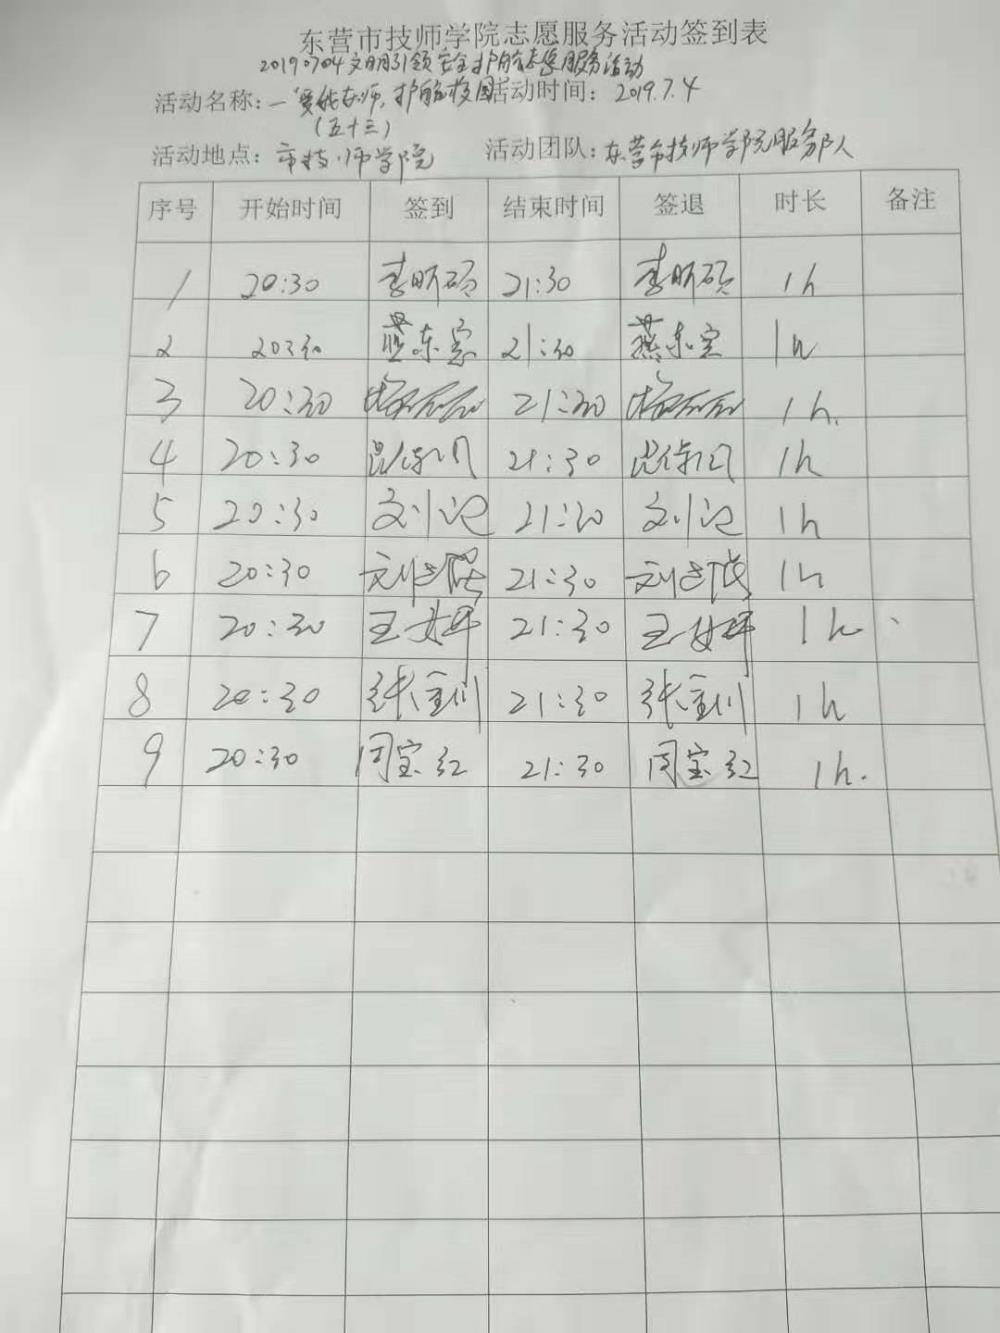 东营市技师学院志愿服务活动签到表
20190704文明引领安全护航志愿服务活动
活动名称：一爱我东师，护航校园 活动时间：2019.7.4
（五十三）
活动地点：市技师学院 活动团队：东营市技师学院服务队
序号 开始时间 签到 结束时间 签退 时长 备注
1 20:30 李昕硕 21:30 李昕硕 1h
2 20:30 燕东宝 21:30 燕东宝 1h
3 20:30 21:30 1h.
4 20:30 21:30 1h
5 20:30 刘 21:30 刘 1h
6 20:30 刘 21:30 刘 1h
7 20:30 王 21:30 王 1h
8 20:30 张金川 21:30 张金川 1h
9 20:30 闫宝红 21:30 闫宝红 1h.